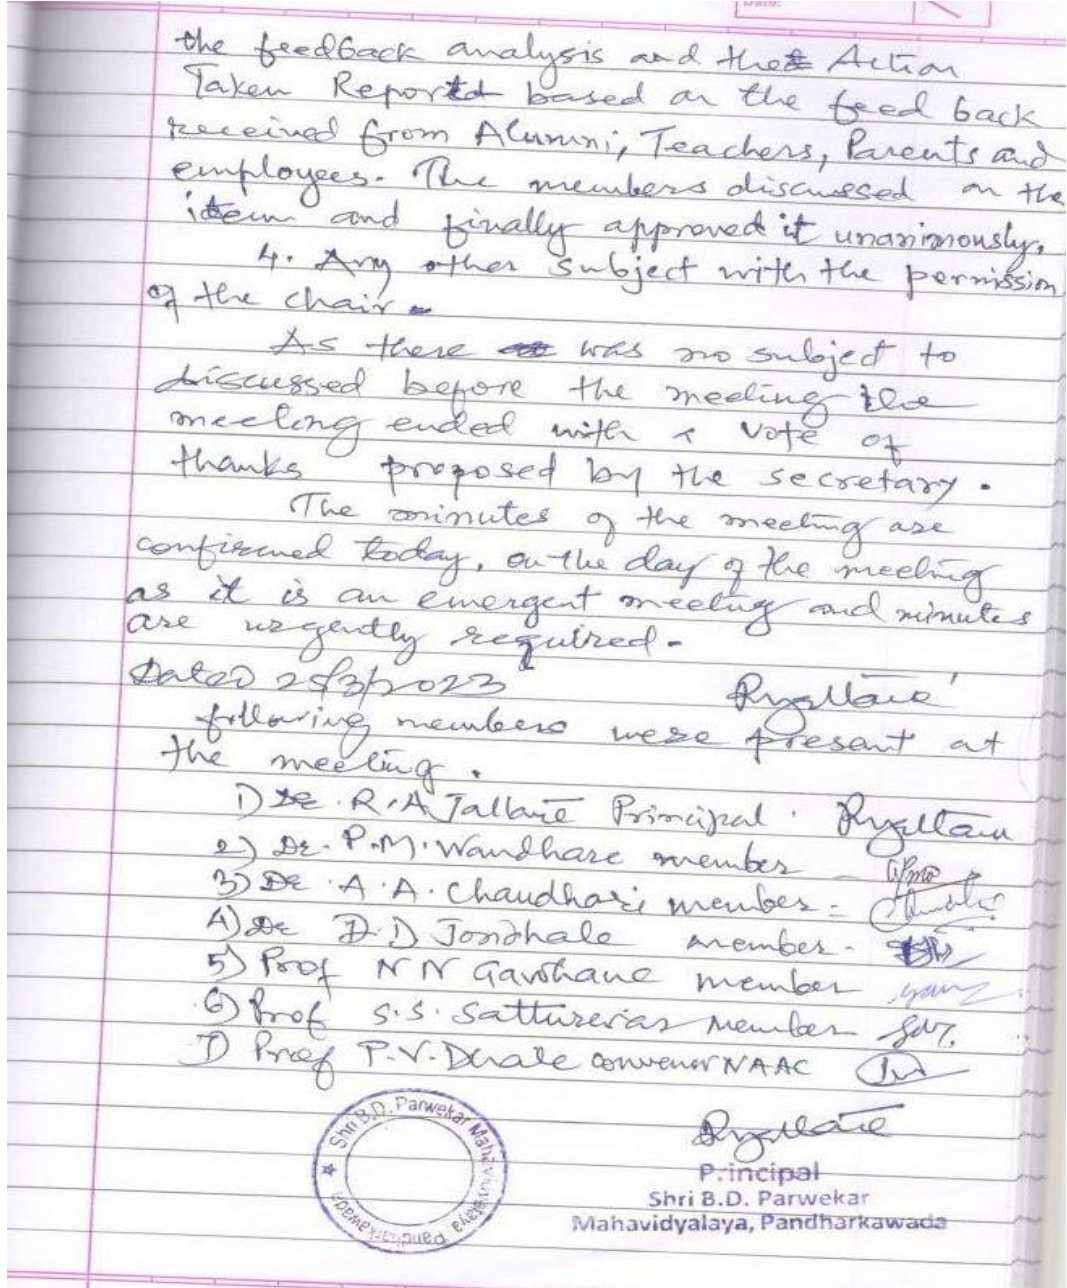 Date:
the feedback analysis and the Action
Taken Report based on the feed back
received from Alumni, Teachers, Parents and
employees. The members discussed on the
item and finally approved it unanimously.
4. Any other subject with the permission
of the chair -
As there was no subject to
discussed before the meeting the
meeting ended with a vote of
thanks proposed by the secretary.
The minutes of the meeting are
confirmed today, on the day of the meeting
as it is an emergent meeting and minutes
are urgently required.
Dated 25/3/2023
following members were present at
the meeting.
1) Dr. R.A Jallawe Principal
2) Dr. P.M. Wandhare member -
3) Dr. A.A. Chaudhari member -
4) Dr D.D Jondhale member -
5) Prof N N Gawhane member
6) Prof S.S. member
7) Prof P.V. convenor NAAC
Shri B.D. Parwekar Mahavidyalaya, Pandharkawada
Principal
Shri B.D. Parwekar
Mahavidyalaya, Pandharkawada